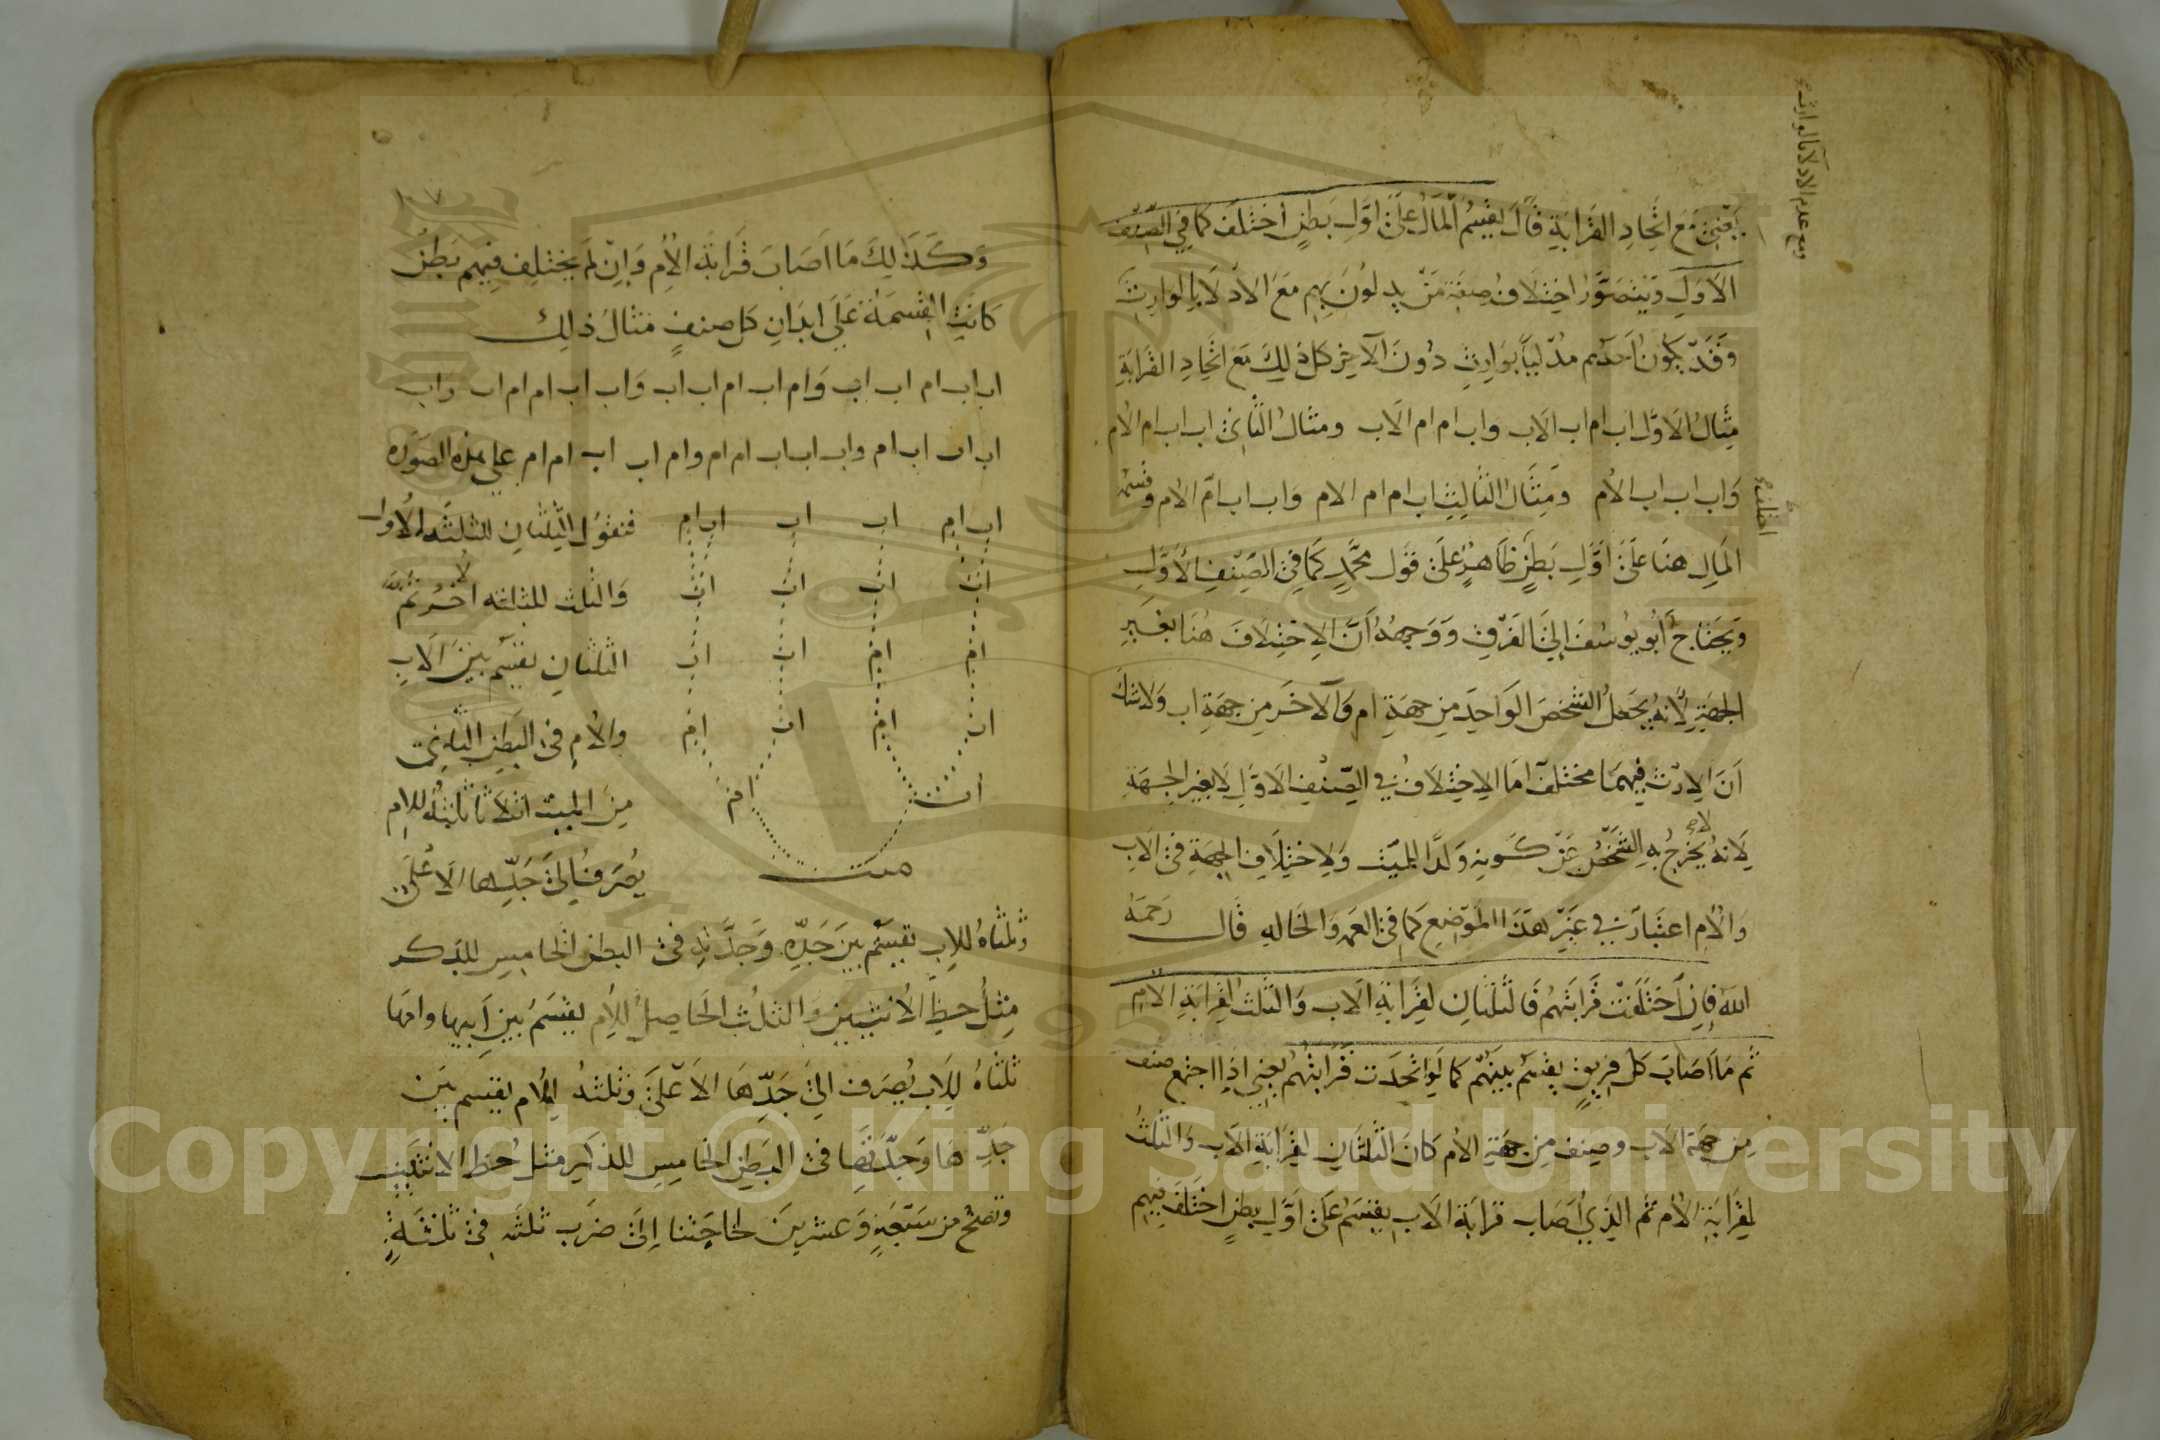 ومع عدم الادلاء بالوارث
يعني مع اتحاد القرابة قال يقسم المال على اول بطن اختلف كما في الصنف
الاول ويتصور اختلاف صفة من يدلون بهم مع الادلاء بالوارث
وقد يكون احدهم مدليا بوارث دون الآخر كل ذلك مع اتحاد القرابة
مثال الاول اب ام اب الاب واب ام ام الاب ومثال الثاني اب اب ام الام
واب اب اب الام ومثال الثالث اب ام ام الام واب اب ام الام وقسمة
المال هنا على اول بطن ظاهر على قول محمد كما في الصنف الاول
ويحتاج ابو يوسف الى الفرق ووجهه ان الاختلاف هنا بغير
الجهة لانه يجعل الشخص الواحد من جهة ام والآخر من جهة اب ولا شك
ان الارث فيهما مختلف اما الاختلاف في الصنف الاول لا بغير الجهة
لانه لا يخرج به الشخص عن كونه ولد الميت ولاختلاف الجهة في الاب
والام اعتبار في غير هذا الموضع كما في العمة والخالة قال رحمه
الله فان اختلفت قرابتهم فالثلثان لقرابة الاب والثلث لقرابة الام
ثم ما اصاب كل فريق يقسم بينهم كما لو اتحدت قرابتهم يعني اذا اجتمع صنف
من جهة الاب وصنف من جهة الام كان الثلثان لقرابة الاب والثلث
لقرابة الام ثم الذي اصاب قرابة الاب يقسم على اول بطن اختلف فيهم
وكذلك ما اصاب قرابة الام وان لم يختلف فيهم بطن
كانت القسمة على ابدان كل صنف مثال ذلك
اب اب ام اب اب وام اب ام اب اب واب اب ام ام اب واب
اب اب اب ام واب اب اب ام ام وام اب اب ام ام على هذه الصورة
اب ام اب اب اب ام
اب اب اب اب
ام ام اب اب
اب ام اب ام
اب ام
ميت
فنقول الثلثان للثلثة الاول
والثلث للثلثة الاخر ثم
الثلثان يقسم بين الاب
والام في البطن الثاني
من الميت اثلاثا ثلثه للام
يصرف الى جدها الاعلى
وثلثاه للاب يقسم بين جده وجدته في البطن الخامس للذكر
مثل حظ الانثيين والثلث الحاصل للام يقسم بين ابيها وامها
ثلثاه للاب يصرف الى جدها الاعلى وثلثه للام يقسم بين
جدها وجدتها في البطن الخامس للذكر مثل حظ الانثيين
وتصح من سبعة وعشرين لحاجتنا الى ضرب ثلثة في ثلثة
Copyright © King Saud University